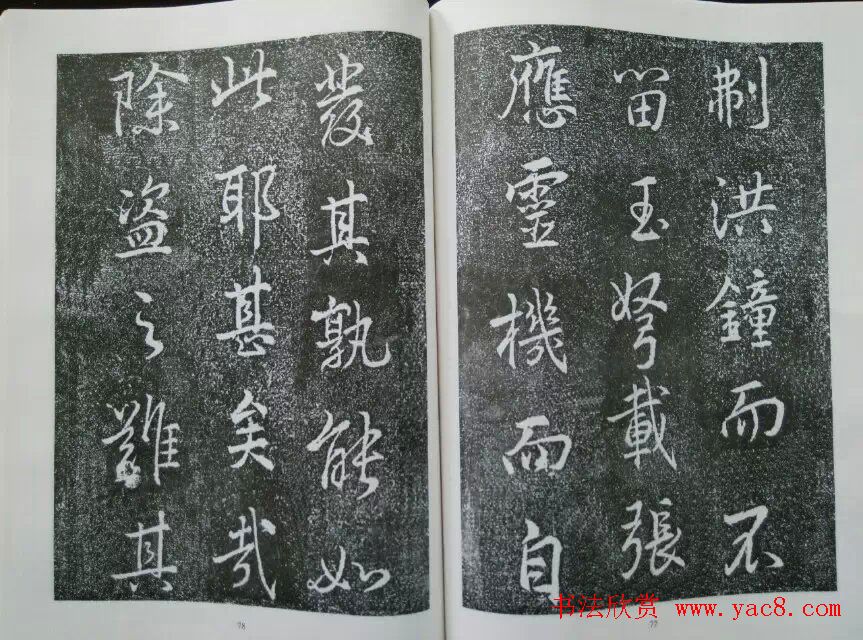 制洪鐘而不
留玉弩載張
應靈機而自
發其孰能如
此耶甚矣哉
除盜之難其
77
78
书法欣赏 www.yac8.com